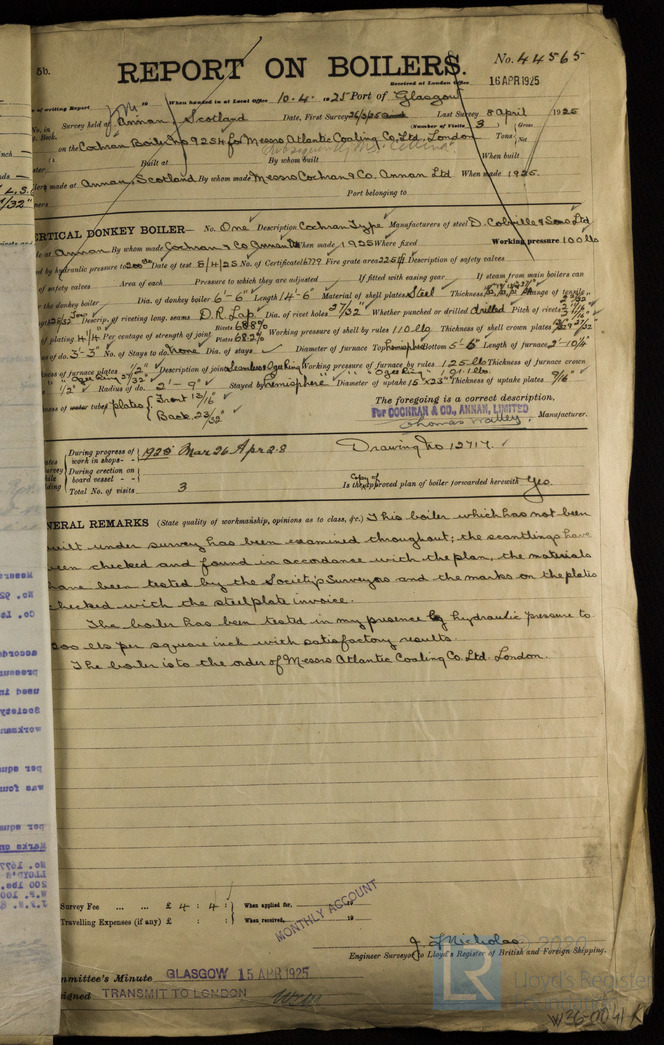 5b.
REPORT ON BOILERS.
No. 44565
Received at London Office
16 APR 1925
of writing Report
When handed in at Local Office 10.4.1925 Port of Glasgow
Survey held at Annan, Scotland Date, First Survey 26/3/25 Last Survey 8 April 1925
(Number of Visits 3) Gross Net Tons
on the Cochran Boiler No 9254 for Messrs Atlantic Coaling Co. Ltd. London
Built at By whom built When built
made at Annan, Scotland By whom made Messrs Cochran & Co. Annan Ltd When made 1925
Port belonging to
VERTICAL DONKEY BOILER— No. One Description Cochran Type Manufacturers of steel D. Colville & Sons Ltd
at Annan By whom made Cochran & Co Annan Ltd When made 1925 Where fixed Working pressure 100 lbs
by hydraulic pressure to 200 lbs Date of test 8/4/25 No. of Certificate 16779 Fire grate area 22.5 ft Description of safety valves
of safety valves Area of each Pressure to which they are adjusted If fitted with easing gear If steam from main boilers can
the donkey boiler Dia. of donkey boiler 6'-6" Length 14'-6" Material of shell plates Steel Thickness Range of tensile
Descrip. of riveting long. seams D.R. Lap Dia. of rivet holes 27/32" Whether punched or drilled drilled Pitch of rivets
of plating 4 1/4 Per centage of strength of joint Rivets 68.8% Plates 68.2% Working pressure of shell by rules 110 lbs Thickness of shell crown plates
of do. 3'-3" No. of Stays to do. None Dia. of stays Diameter of furnace Top hemisphere Bottom 5'-6" Length of furnace 2'-10 1/4"
of furnace plates 1/2" Description of joint Seamless Ogee Ring Working pressure of furnace by rules 125 lbs Thickness of furnace crown
" Ogee Ring 27/32" " Ogee Ring " 121 lbs
1/2" Radius of do. 2'-9" Stayed by hemisphere Diameter of uptake 15" x 23" Thickness of uptake plates 9/16"
of water tubes plates Front 13/16" Back 23/32"
The foregoing is a correct description,
For COCHRAN & CO., ANNAN, LIMITED
Manufacturer.
During progress of work in shops - - 1925 Mar 26 Apr 2.8
Drawing No 12717.
During erection on board vessel - -
Total No. of visits 3
Is the Copy of approved plan of boiler forwarded herewith Yes.
GENERAL REMARKS (State quality of workmanship, opinions as to class, &c.) This boiler which has not been
built under survey has been examined throughout; the scantlings have
been checked and found in accordance with the plan, the materials
have been tested by the Society's Surveyors and the marks on the plates
checked with the steelplate invoice.
The boiler has been tested in my presence by hydraulic pressure to
200 lbs per square inch with satisfactory results.
The boiler is to the order of Messrs Atlantic Coaling Co. Ltd. London.
Survey Fee ... ... £ 4 : 4 : When applied for, 19
Travelling Expenses (if any) £ : : When received, 19
MONTHLY ACCOUNT
J. Nicholas
Engineer Surveyor to Lloyd's Register of British and Foreign Shipping.
Committee's Minute GLASGOW 15 APR 1925
Assigned TRANSMIT TO LONDON
© 2020
LR
Lloyd's Register
Foundation
W36-0041 R